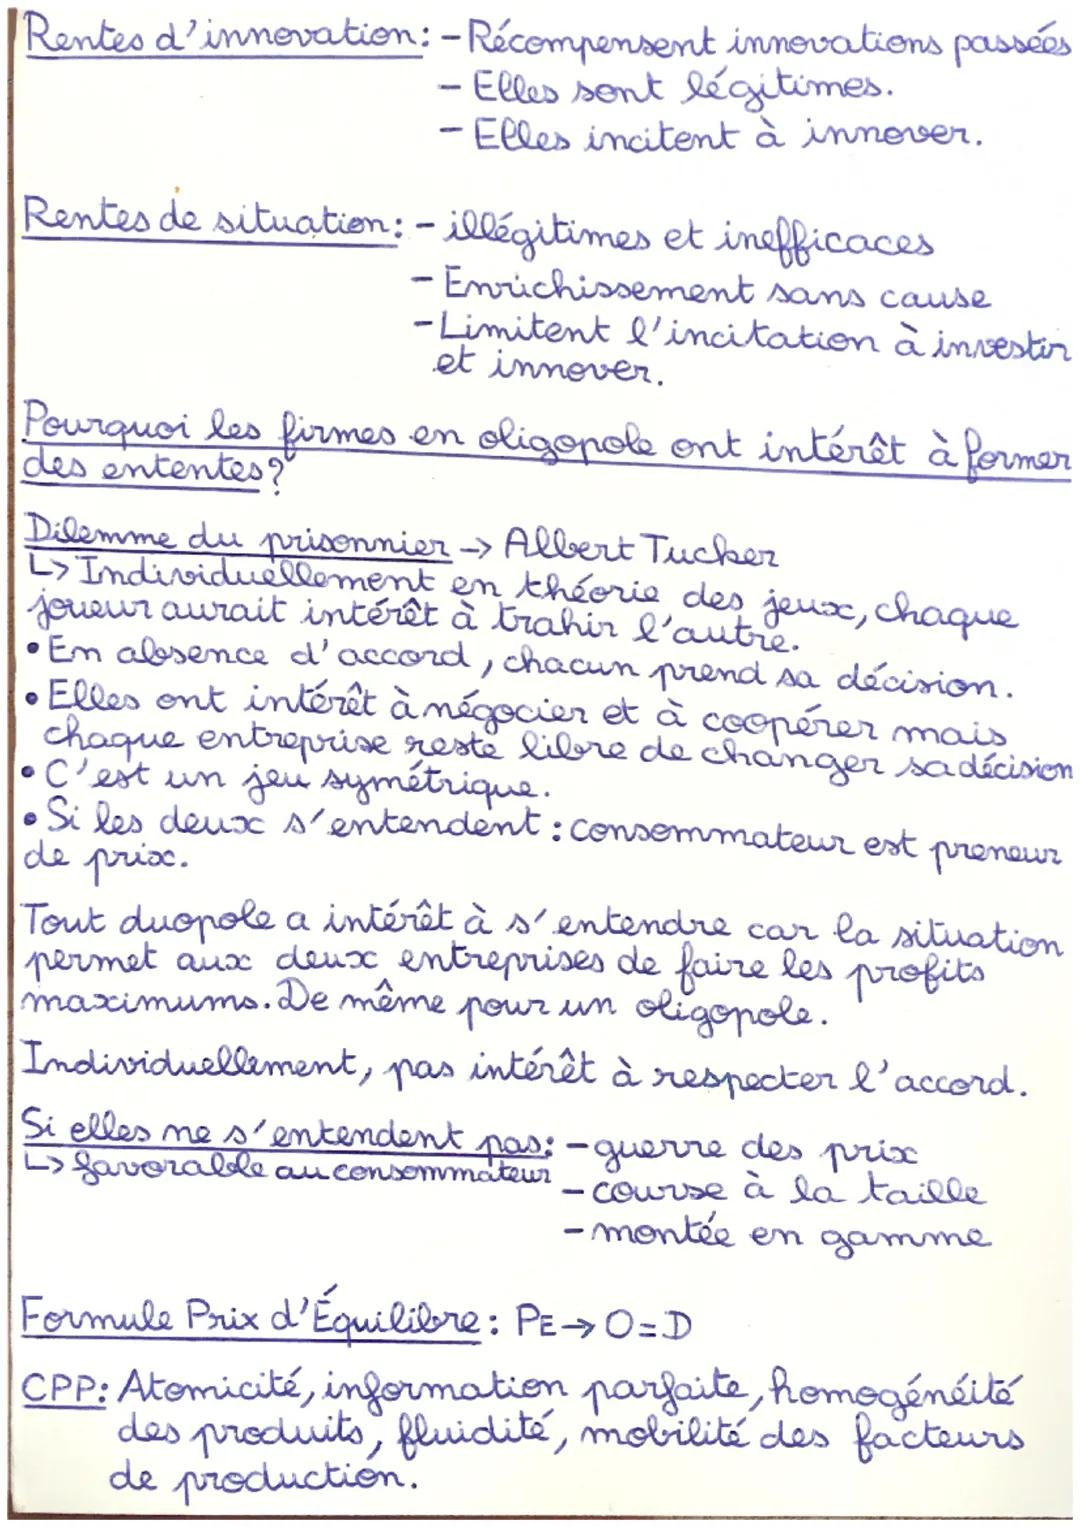 Rentes d'innovation: - Récompensent innovations passées
- Elles sont légitimes.
- Elles incitent à innover.
Rentes de situation: - illégitimes et inefficaces
- Enrichissement sans cause
- Limitent l'incitation à investir
et innover.
Pourquoi les firmes en oligopole ont intérêt à former
des ententes?
Dilemme du prisonnier → Albert Tucker
↳ Individuellement en théorie des jeux, chaque
joueur aurait intérêt à trahir l'autre.
• En absence d'accord, chacun prend sa décision.
• Elles ont intérêt à négocier et à coopérer mais
chaque entreprise reste libre de changer sa décision
• C'est un jeu symétrique.
• Si les deux s'entendent : consommateur est preneur
de prix.
Tout duopole a intérêt à s'entendre car la situation
permet aux deux entreprises de faire les profits
maximums. De même pour un oligopole.
Individuellement, pas intérêt à respecter l'accord.
Si elles ne s'entendent pas: - guerre des prix
↳ favorable au consommateur
- course à la taille
- montée en gamme
Formule Prix d'Équilibre: PE → O = D
CPP: Atomicité, information parfaite, homogénéité
des produits, fluidité, mobilité des facteurs
de production.